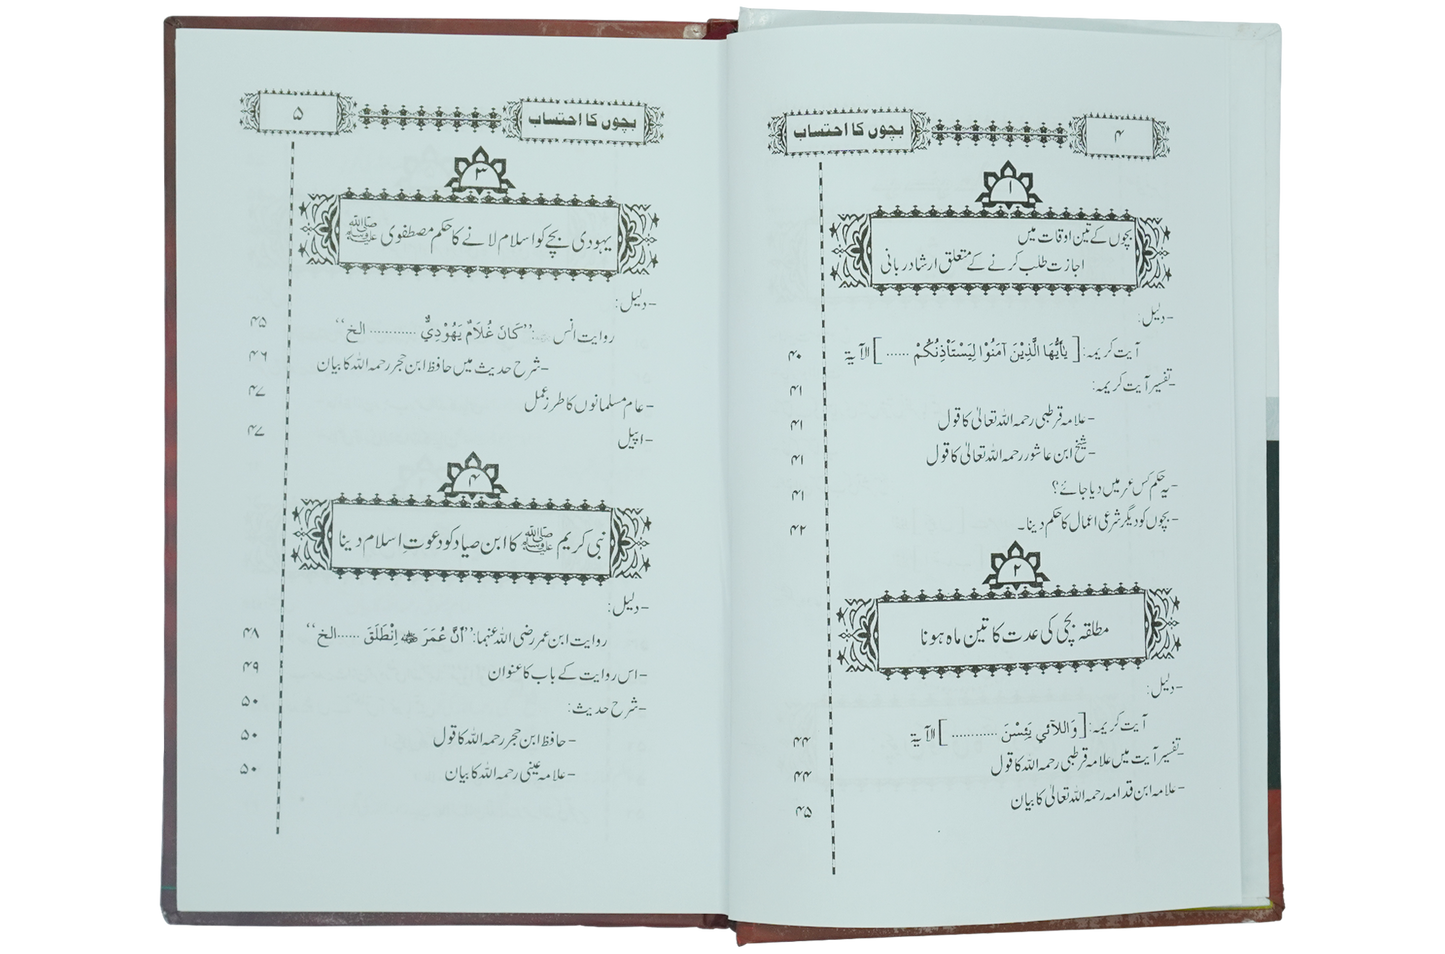 بچوں کا احتساب ۴
۱
بچوں کے تین اوقات میں
اجازت طلب کرنے کے متعلق ارشاد ربانی
-دلیل:
آیت کریمہ: [ يٰأَيُّهَا الَّذِيْنَ آمَنُوْا لِيَسْتَأْذِنْكُمْ ...... ] الآية ۴۰
-تفسیر آیت کریمہ: ۴۱
-علامہ قرطبی رحمہ اللہ تعالیٰ کا قول ۴۱
-شیخ ابن عاشور رحمہ اللہ تعالیٰ کا قول ۴۱
-یہ حکم کس عمر میں دیا جائے؟ ۴۱
-بچوں کو دیگر شرعی اعمال کا حکم دینا۔ ۴۲
۲
مطلقہ بچی کی عدت کا تین ماہ ہونا
-دلیل:
آیت کریمہ: [ وَاللَّائِي يَئِسْنَ ............ ] الآية ۴۴
-تفسیر آیت میں علامہ قرطبی رحمہ اللہ کا قول ۴۴
-علامہ ابن قدامہ رحمہ اللہ تعالیٰ کا بیان ۴۵
بچوں کا احتساب ۵
۳
یہودی بچے کو اسلام لانے کا حکم مصطفوی ﷺ
-دلیل:
روایت انس : ’’كَانَ غُلَامٌ يَهُوْدِيٌّ ............ الخ‘‘ ۴۵
-شرح حدیث میں حافظ ابن حجر رحمہ اللہ کا بیان ۴۶
-عام مسلمانوں کا طرز عمل ۴۷
-اپیل ۴۷
۴
نبی کریم ﷺ کا ابن صیاد کو دعوتِ اسلام دینا
-دلیل:
روایت ابن عمر رضی اللہ عنہما: ’’أَنَّ عُمَرَ ؓ اِنْطَلَقَ ......الخ‘‘ ۴۸
-اس روایت کے باب کا عنوان ۴۹
-شرح حدیث: ۵۰
-حافظ ابن حجر رحمہ اللہ کا قول ۵۰
-علامہ عینی رحمہ اللہ کا بیان ۵۰